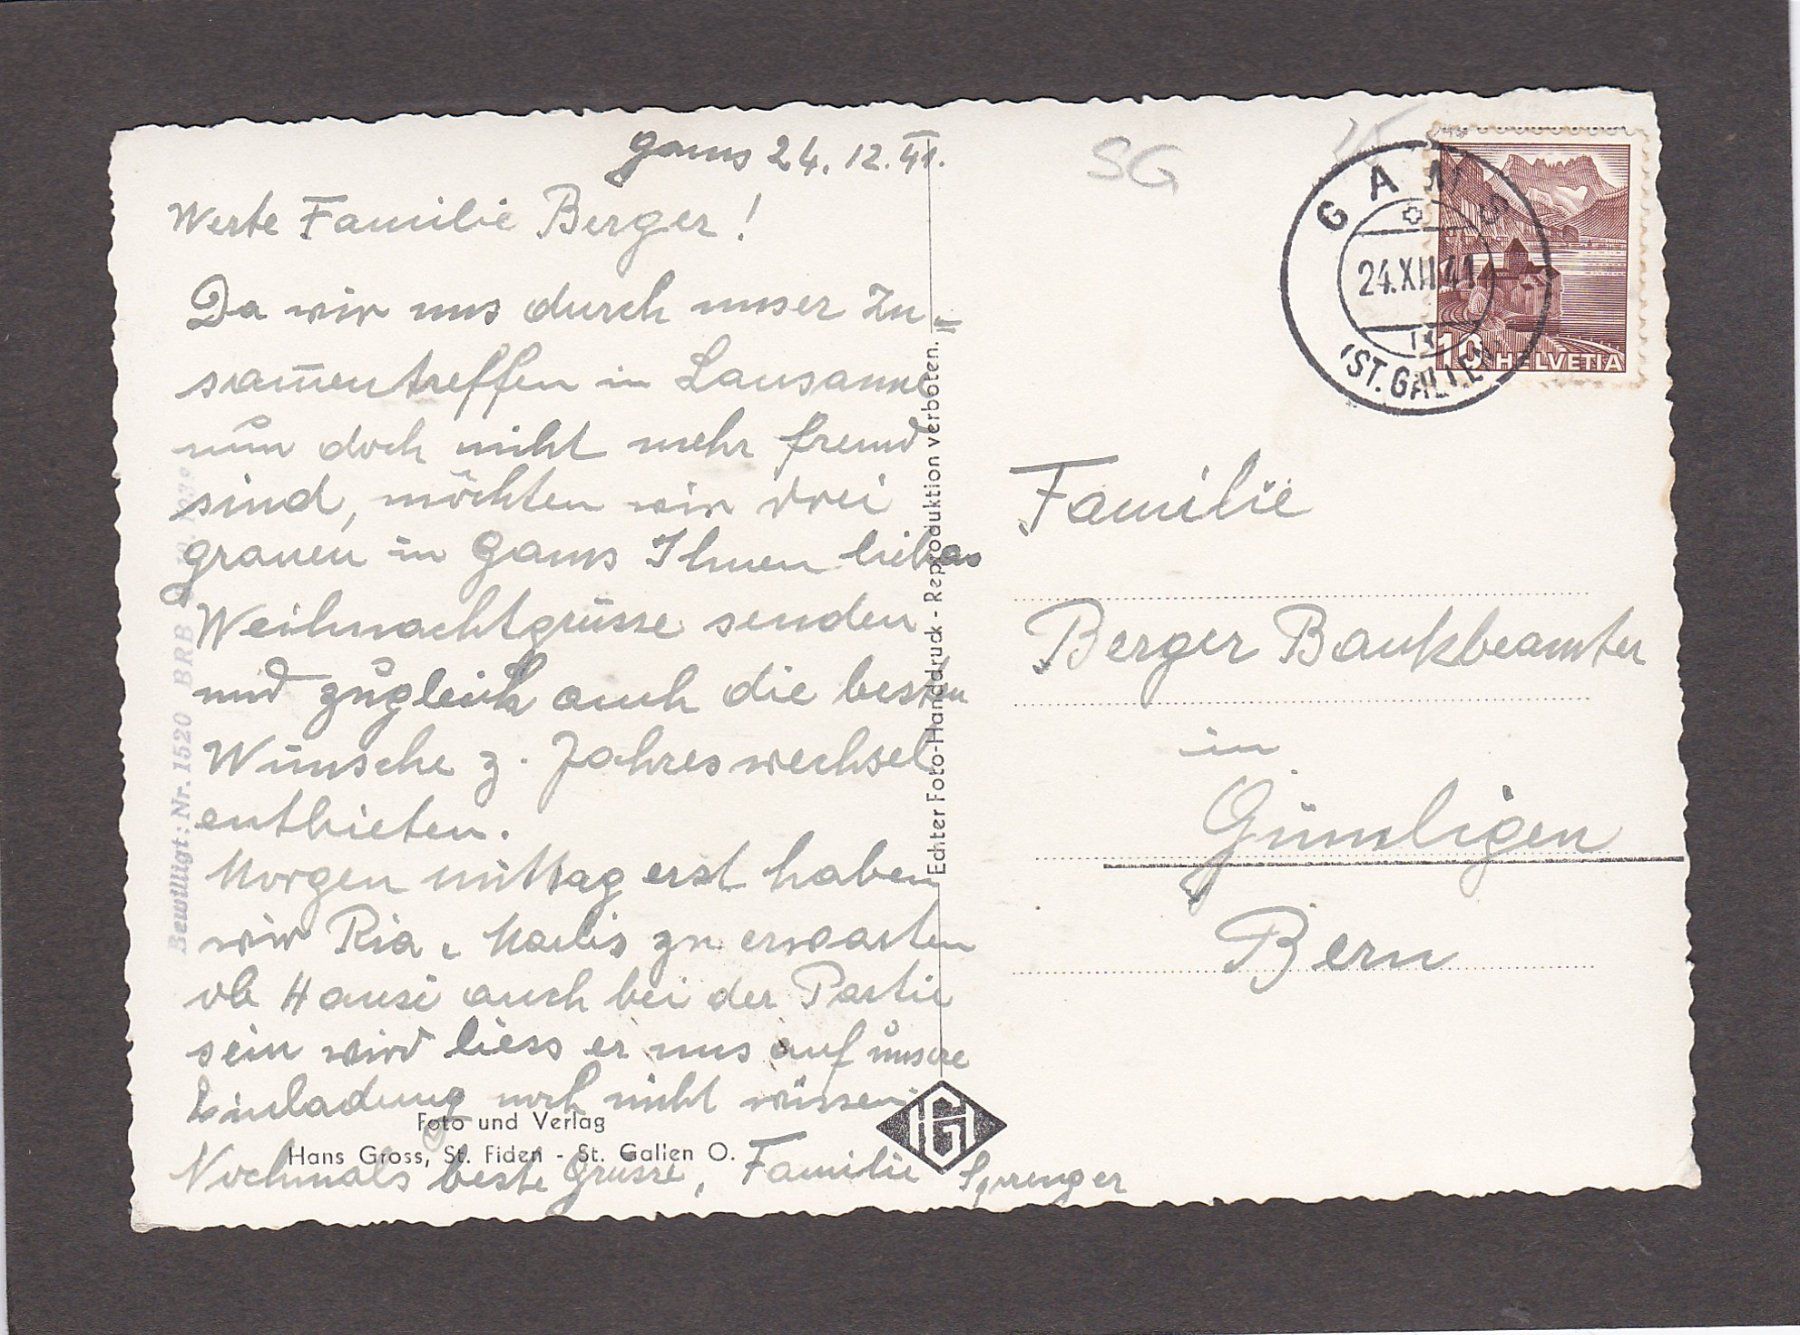 Gams 24. 12. 41.
Werte Familie Berger!
Da wir uns durch unser Zu=
samentreffen in Lausanne
nun doch nicht mehr fremd
sind, möchten wir drei
grauen in Gams Ihnen liebas
Weihnachtgrüsse senden
und zugleich auch die besten
Wünsche z. Jahreswechsel
entbieten.
Morgen mittag erst haben
wir Ria & Marlis zu erwarten
ob Hansi auch bei der Partie
sein wird liess er uns auf unsere
Einladung noch nicht wissen
Nochmals beste Grüsse, Familie Sprenger
Foto und Verlag
Hans Gross, St. Fiden - St. Gallen O.
HG
Bewilligt: Nr. 1520 BRB
Echter Foto-Handdruck - Reproduktion verboten.
SG
GAMS
24.XII.41
(ST. GALLEN)
10 HELVETIA
Familie
Berger Bankbeamter
in
Gümligen
Bern